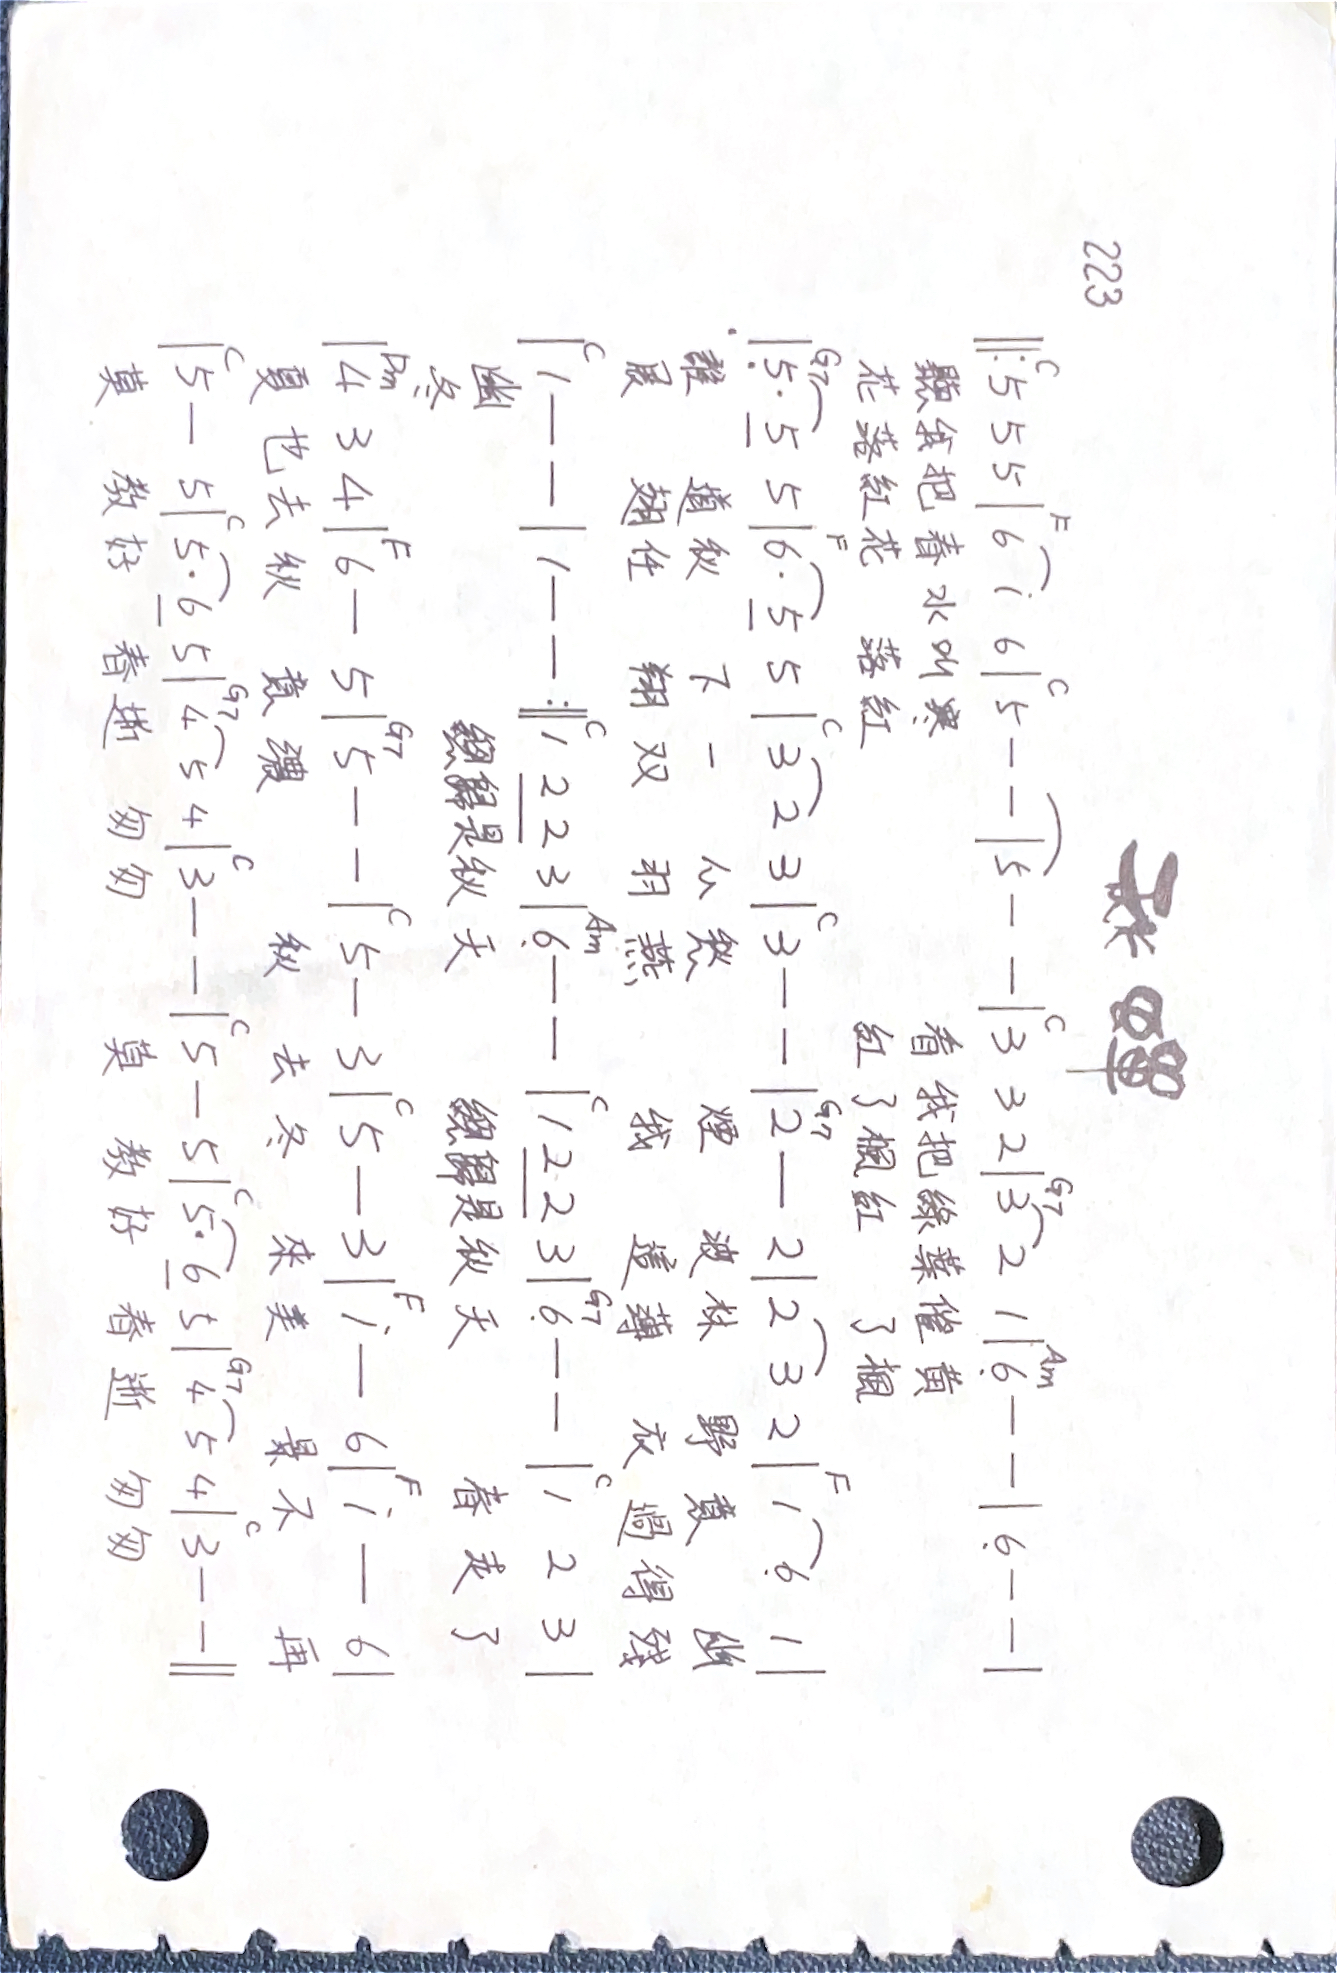 秋蟬
223
C F C C G7 Am
‖: 5 5 5 | 6 i 6 | 5 — — | 5 — — | 3 3 2 | 3 2 1 | 6̣ — — | 6̣ — — |
聽我把春水叫寒 看我把綠葉催黃
花落紅花 落紅 紅了楓紅 了楓
G7 F C C G7 F
| 5̣· 5 5 | 6· 5 5 | 3 2 3 | 3 — — | 2 — 2 | 2 3 2 | 1 6̣ 1 |
誰 道秋 下一 心愁 煙 波林 野意 幽
展 翅任 翔双 羽燕 我 這薄 衣過得殘
C C Am C G7 C
| 1 — — | 1 — — :‖ 1 2 2 3 | 6̣ — — | 1 2 2 3 | 6̣ — — | 1 2 3 |
幽 總歸是秋天 總歸是秋天 春走了
冬
Dm F G7 C C F F
| 4 3 4 | 6 — 5 | 5 — — | 5 — 3 | 5 — 3 | i — 6 | i — 6 |
夏也去秋 意濃 秋 去冬 來美 景不 再
C C G7 C C C G7 C
| 5 — 5 | 5· 6 5 | 4 5 4 | 3 — — | 5 — 5 | 5· 6 5 | 4 5 4 | 3 — — ‖
莫 教好 春逝 匆匆 莫 教好 春逝 匆匆